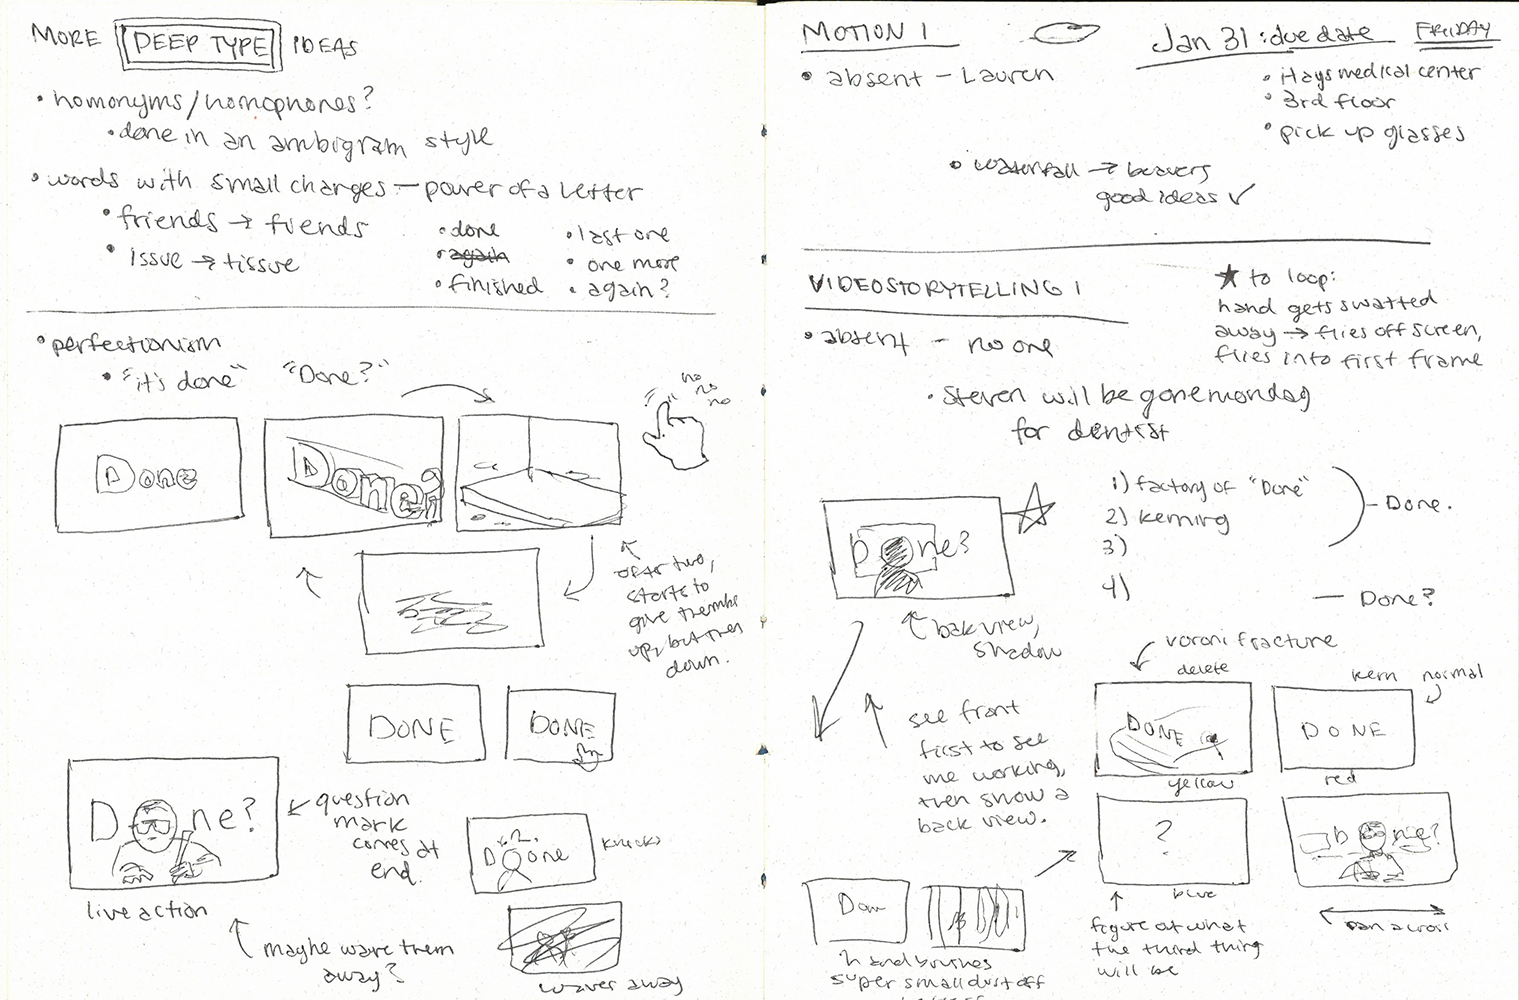 MORE DEEP TYPE IDEAS
• homonyms/homophones?
• done in an ambigram style
• words with small changes — power of a letter
• friends → fiends
• issue → tissue
• done
• again
• finished
• last one
• one more
• again?
• perfectionism
• "it's done" "Done?"
no
no
no
Done
Done?
after two,
starts to
give thumbs
up, but then
down.
DONE
DONE
Done?
question
mark
comes at
end.
live action
maybe wave them
away?
Done
knocks
waves away
MOTION 1
• absent — Lauren
Jan 31 : due date FRIDAY
• Hays medical center
• 3rd floor
• pick up glasses
• waterfall → beavers
good ideas ✓
VIDEOSTORYTELLING 1
• absent — no one
★ to loop:
hand gets swatted
away → flies off screen,
flies into first frame
• Steven will be gone monday
for dentist
1) factory of "Done"
2) kerning
3)
4)
— Done.
— Done?
Done?
bak view,
shadow
see front
first to see
me working,
then show a
back view.
voroni fracture
delete
DONE
yellow
kern normal
DONE
red
?
blue
figure out what
the third thing
will be
Done?
pan across
Don
hand brushes
super small dust off